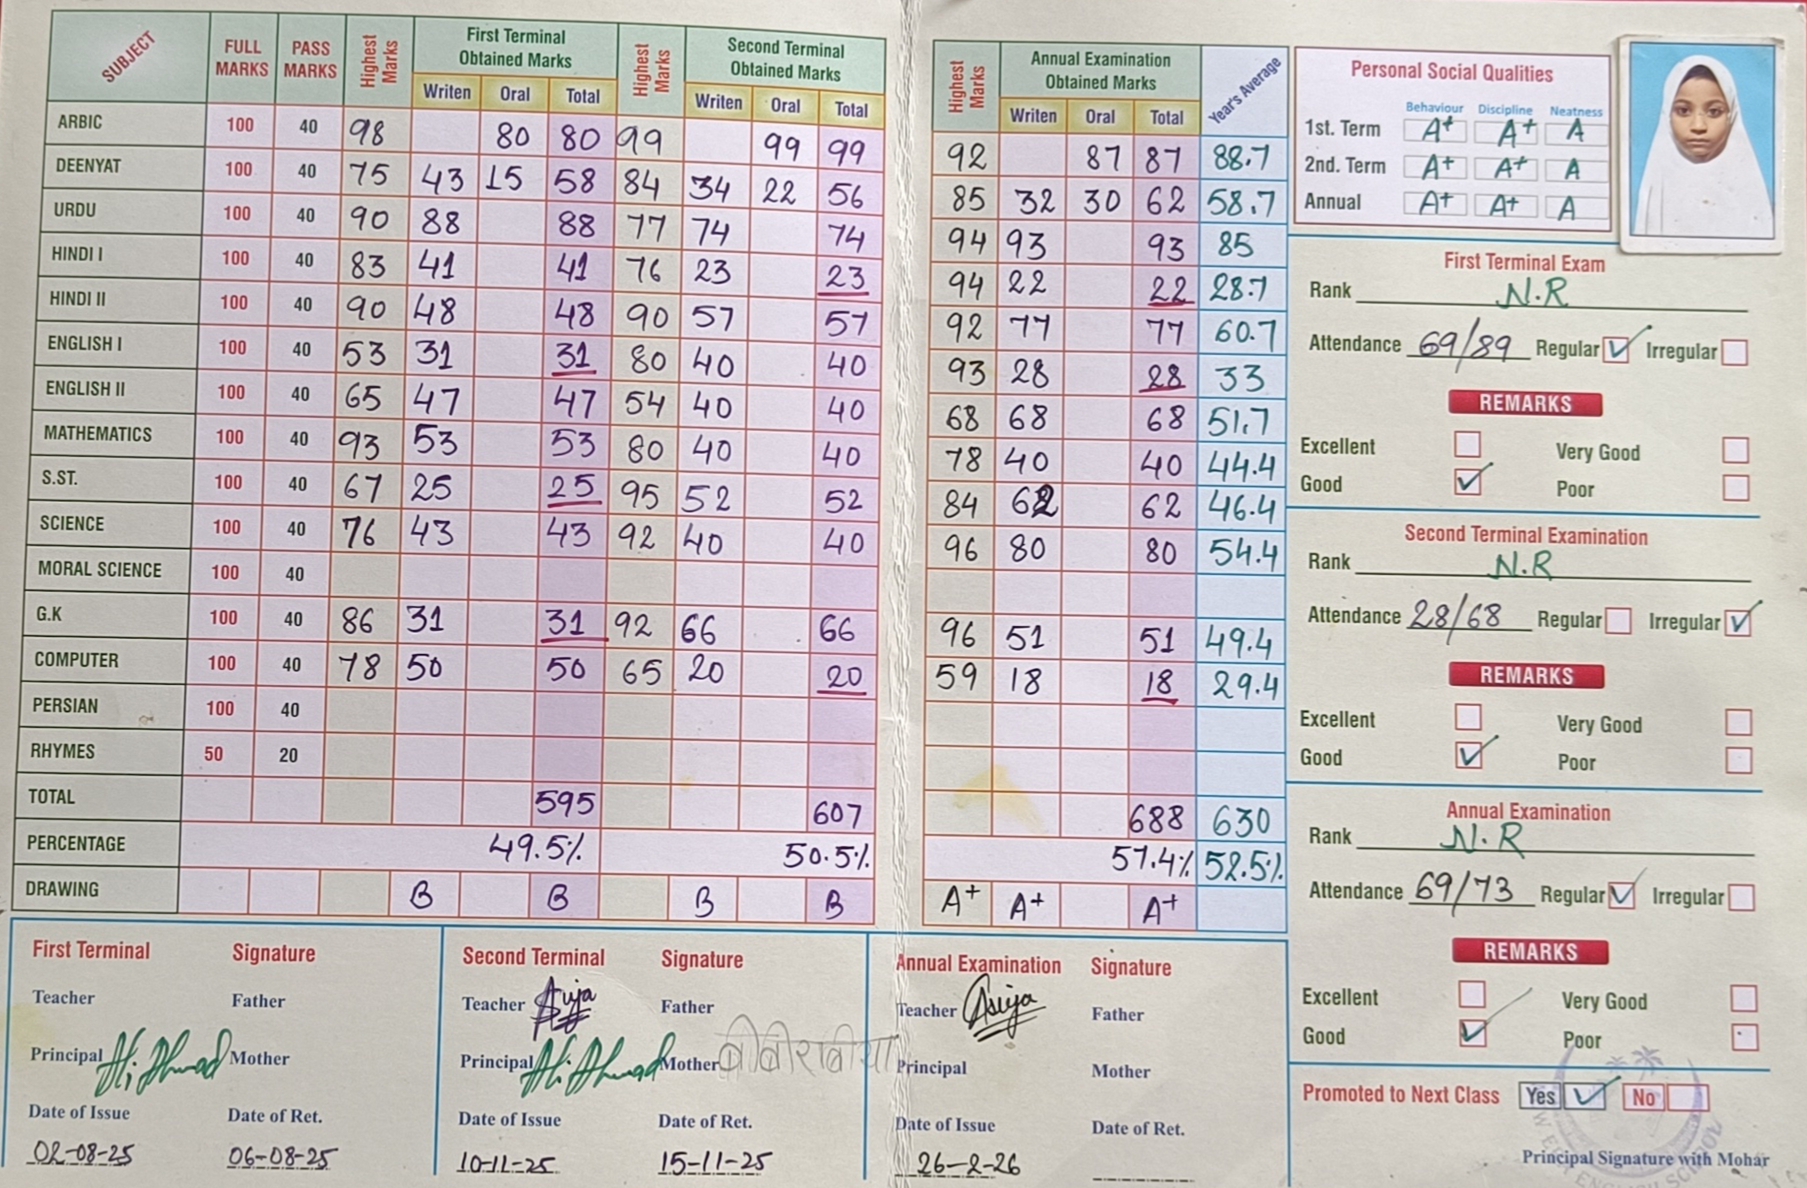 SUBJECT FULL MARKS PASS MARKS Highest Marks First Terminal Obtained Marks Highest Marks Second Terminal Obtained Marks Highest Marks Annual Examination Obtained Marks Year's Average
Writen Oral Total Writen Oral Total Writen Oral Total
ARBIC 100 40 98 80 80 99 99 99 92 87 87 88.7
DEENYAT 100 40 75 43 15 58 84 34 22 56 85 32 30 62 58.7
URDU 100 40 90 88 88 77 74 74 94 93 93 85
HINDI I 100 40 83 41 41 76 23 23 94 22 22 28.7
HINDI II 100 40 90 48 48 90 57 57 92 77 77 60.7
ENGLISH I 100 40 53 31 31 80 40 40 93 28 28 33
ENGLISH II 100 40 65 47 47 54 40 40 68 68 68 51.7
MATHEMATICS 100 40 93 53 53 80 40 40 78 40 40 44.4
S.ST. 100 40 67 25 25 95 52 52 84 62 62 46.4
SCIENCE 100 40 76 43 43 92 40 40 96 80 80 54.4
MORAL SCIENCE 100 40
G.K 100 40 86 31 31 92 66 66 96 51 51 49.4
COMPUTER 100 40 78 50 50 65 20 20 59 18 18 29.4
PERSIAN 100 40
RHYMES 50 20
TOTAL 595 607 688 630
PERCENTAGE 49.5% 50.5% 57.4% 52.5%
DRAWING B B B B A+ A+ A+
First Terminal Signature
Teacher Father
Principal Ali Ahmad Mother
Date of Issue Date of Ret.
02-08-25 06-08-25
Second Terminal Signature
Teacher Father
Principal Ali Ahmad Mother बीबीराबीया
Date of Issue Date of Ret.
10-11-25 15-11-25
Annual Examination Signature
Teacher Father
Principal Mother
Date of Issue Date of Ret.
26-2-26
Personal Social Qualities
Behaviour Discipline Neatness
1st. Term A+ A+ A
2nd. Term A+ A+ A
Annual A+ A+ A
First Terminal Exam
Rank N.R
Attendance 69/89 Regular Irregular
REMARKS
Excellent Very Good
Good Poor
Second Terminal Examination
Rank N.R
Attendance 28/68 Regular Irregular
REMARKS
Excellent Very Good
Good Poor
Annual Examination
Rank N.R
Attendance 69/73 Regular Irregular
REMARKS
Excellent Very Good
Good Poor
Promoted to Next Class Yes No
Principal Signature with Mohar